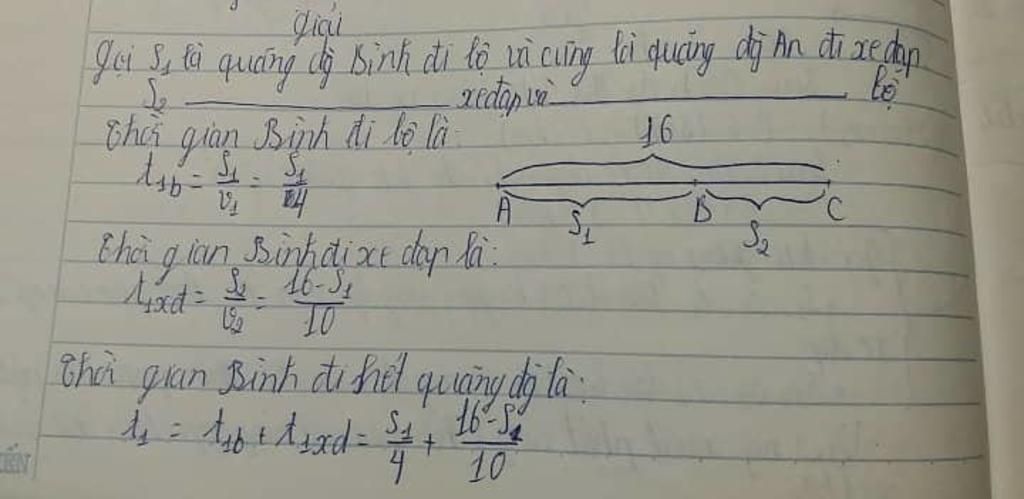 Giải
Gọi S₁ là quãng đg Bình đi bộ và cũng là quãng đg An đi xe đạp
S₂ ———— xe đạp và ———— bộ
Thời gian Bình đi bộ là:
t₁b = S₁/v₁ = S₁/4
16
A S₁ B S₂ C
Thời gian Bình đi xe đạp là:
t₁xđ = S₂/v₂ = (16-S₁)/10
Thời gian Bình đi hết quãng đg là:
t₁ = t₁b + t₁xđ = S₁/4 + (16-S₁)/10